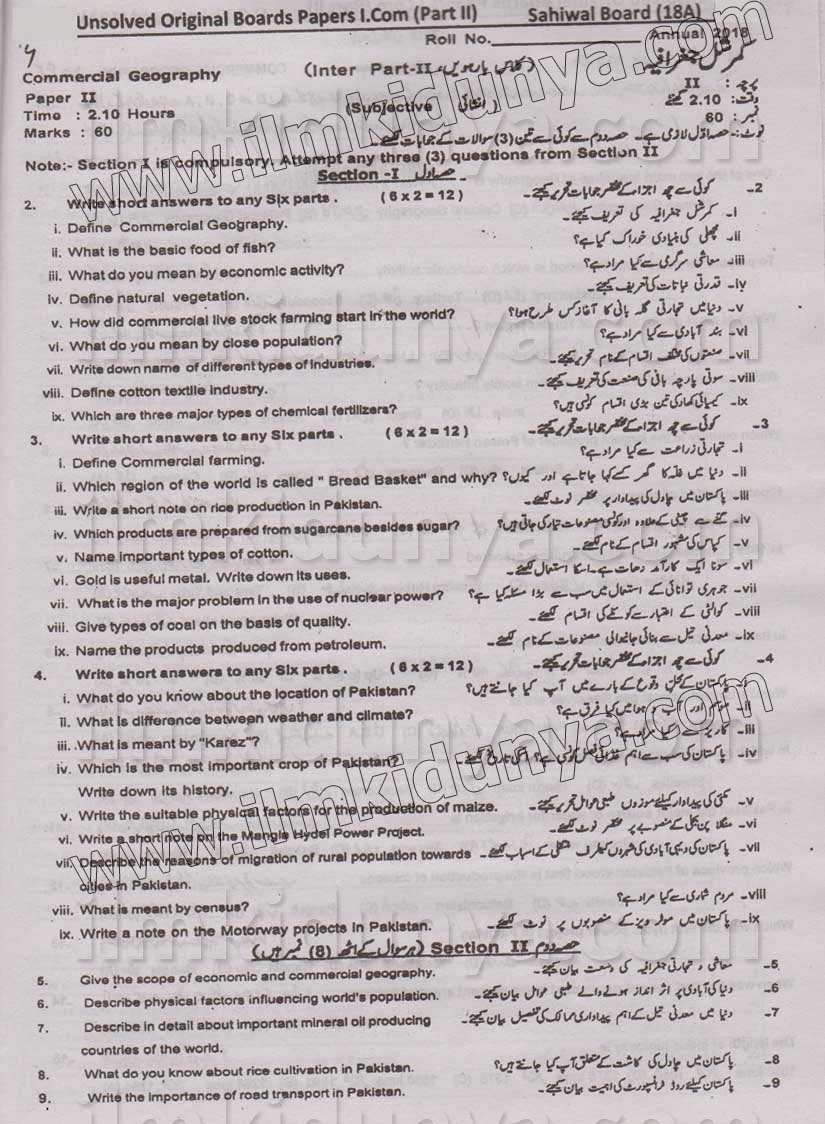 Unsolved Original Boards Papers I.Com (Part II) Sahiwal Board (18A)
Roll No. Annual 2018
Commercial Geography (Inter Part-II, کلاس بارہویں) کمرشل جغرافیہ
Paper II پرچہ : II
Time : 2.10 Hours (Subjective انشائی) وقت: 2.10 گھنٹے
Marks : 60 نمبر : 60
نوٹ:- حصہ اوّل لازمی ہے۔ حصہ دوم سے کوئی سے تین (3) سوالات کے جوابات لکھئے۔
Note:- Section I is compulsory. Attempt any three (3) questions from Section II
Section -I حصہ اول
2. Write short answers to any Six parts . ( 6 x 2 = 12 ) 2- کوئی سے چھ اجزاء کے مختصر جوابات تحریر کیجئے۔
i. Define Commercial Geography. i- کمرشل جغرافیہ کی تعریف کیجئے۔
ii. What is the basic food of fish? ii- مچھلی کی بنیادی خوراک کیا ہے؟
iii. What do you mean by economic activity? iii- معاشی سرگرمی سے کیا مراد ہے؟
iv. Define natural vegetation. iv- قدرتی نباتات کی تعریف کیجئے۔
v. How did commercial live stock farming start in the world? v- دنیا میں تجارتی گلہ بانی کا آغاز کس طرح ہوا؟
vi. What do you mean by close population? vi- بند آبادی سے کیا مراد ہے؟
vii. Write down name of different types of industries. vii- صنعتوں کی مختلف اقسام کے نام تحریر کیجئے۔
viii. Define cotton textile industry. viii- سوتی پارچہ بافی کی صنعت کی تعریف کیجئے۔
ix. Which are three major types of chemical fertilizers? ix- کیمیائی کھاد کی تین بڑی اقسام کونسی ہیں؟
3. Write short answers to any Six parts . ( 6 x 2 = 12 ) 3- کوئی سے چھ اجزاء کے مختصر جوابات تحریر کیجئے۔
i. Define Commercial farming. i- تجارتی زراعت سے کیا مراد ہے؟
ii. Which region of the world is called " Bread Basket" and why? ii- دنیا میں غلہ کا گھر کسے کہا جاتا ہے اور کیوں؟
iii. Write a short note on rice production in Pakistan. iii- پاکستان میں چاول کی پیداوار پر مختصر نوٹ لکھئے۔
iv. Which products are prepared from sugarcane besides sugar? iv- گنے سے چینی کے علاوہ اور کونسی مصنوعات تیار کی جاتی ہیں؟
v. Name important types of cotton. v- کپاس کی مشہور اقسام کے نام لکھئے۔
vi. Gold is useful metal. Write down its uses. vi- سونا ایک کارآمد دھات ہے۔ اسکا استعمال لکھئے۔
vii. What is the major problem in the use of nuclear power? vii- جوہری توانائی کے استعمال میں سب سے بڑا مسئلہ کیا ہے؟
viii. Give types of coal on the basis of quality. viii- کوالٹی کے اعتبار سے کوئلے کی اقسام لکھئے۔
ix. Name the products produced from petroleum. ix- معدنی تیل سے بنائی جانیوالی مصنوعات کے نام لکھئے۔
4. Write short answers to any Six parts . ( 6 x 2 = 12 ) 4- کوئی سے چھ اجزاء کے مختصر جوابات تحریر کیجئے۔
i. What do you know about the location of Pakistan? i- پاکستان کے محل وقوع کے بارے میں آپ کیا جانتے ہیں؟
ii. What is difference between weather and climate? ii- موسم اور آب و ہوا میں کیا فرق ہے؟
iii. What is meant by "Karez"? iii- کاریز سے کیا مراد ہے؟
iv. Which is the most important crop of Pakistan? iv- پاکستان کی سب سے اہم غذائی فصل کونسی ہے؟ اسکی تاریخ لکھئے۔
Write down its history.
v. Write the suitable physical factors for the production of maize. v- مکئی کی پیداوار کیلئے موزوں طبعی عوامل تحریر کیجئے۔
vi. Write a short note on the Mangla Hydel Power Project. vi- منگلا پن بجلی کے منصوبے پر مختصر نوٹ لکھئے۔
vii. Describe the reasons of migration of rural population towards vii- پاکستان کی دیہی آبادی کی شہروں کیطرف منتقلی کے اسباب لکھئے۔
cities in Pakistan.
viii. What is meant by census? viii- مردم شماری سے کیا مراد ہے؟
ix. Write a note on the Motorway projects in Pakistan. ix- پاکستان میں موٹر ویز کے منصوبوں پر نوٹ لکھئے۔
حصہ دوم Section II (ہر سوال کے آٹھ (8) نمبر ہیں)
5. Give the scope of economic and commercial geography. 5- معاشی و تجارتی جغرافیہ کی وسعت بیان کیجئے۔
6. Describe physical factors influencing world's population. 6- دنیا کی آبادی پر اثر انداز ہونے والے طبعی عوامل بیان کیجئے۔
7. Describe in detail about important mineral oil producing 7- دنیا میں معدنی تیل کے اہم پیداواری ممالک کی تفصیل بیان کیجئے۔
countries of the world.
8. What do you know about rice cultivation in Pakistan. 8- پاکستان میں چاول کی کاشت کے متعلق آپ کیا جانتے ہیں؟
9. Write the importance of road transport in Pakistan. 9- پاکستان کیلئے روڈ ٹرانسپورٹ کی اہمیت بیان کیجئے۔
www.ilmkidunya.com
www.ilmkidunya.com
ilmkidunya.com
ilmkidunya.com
ilmkidunya.com
ilmkidunya.com
ilmkidunya.com
ilmkidunya.com